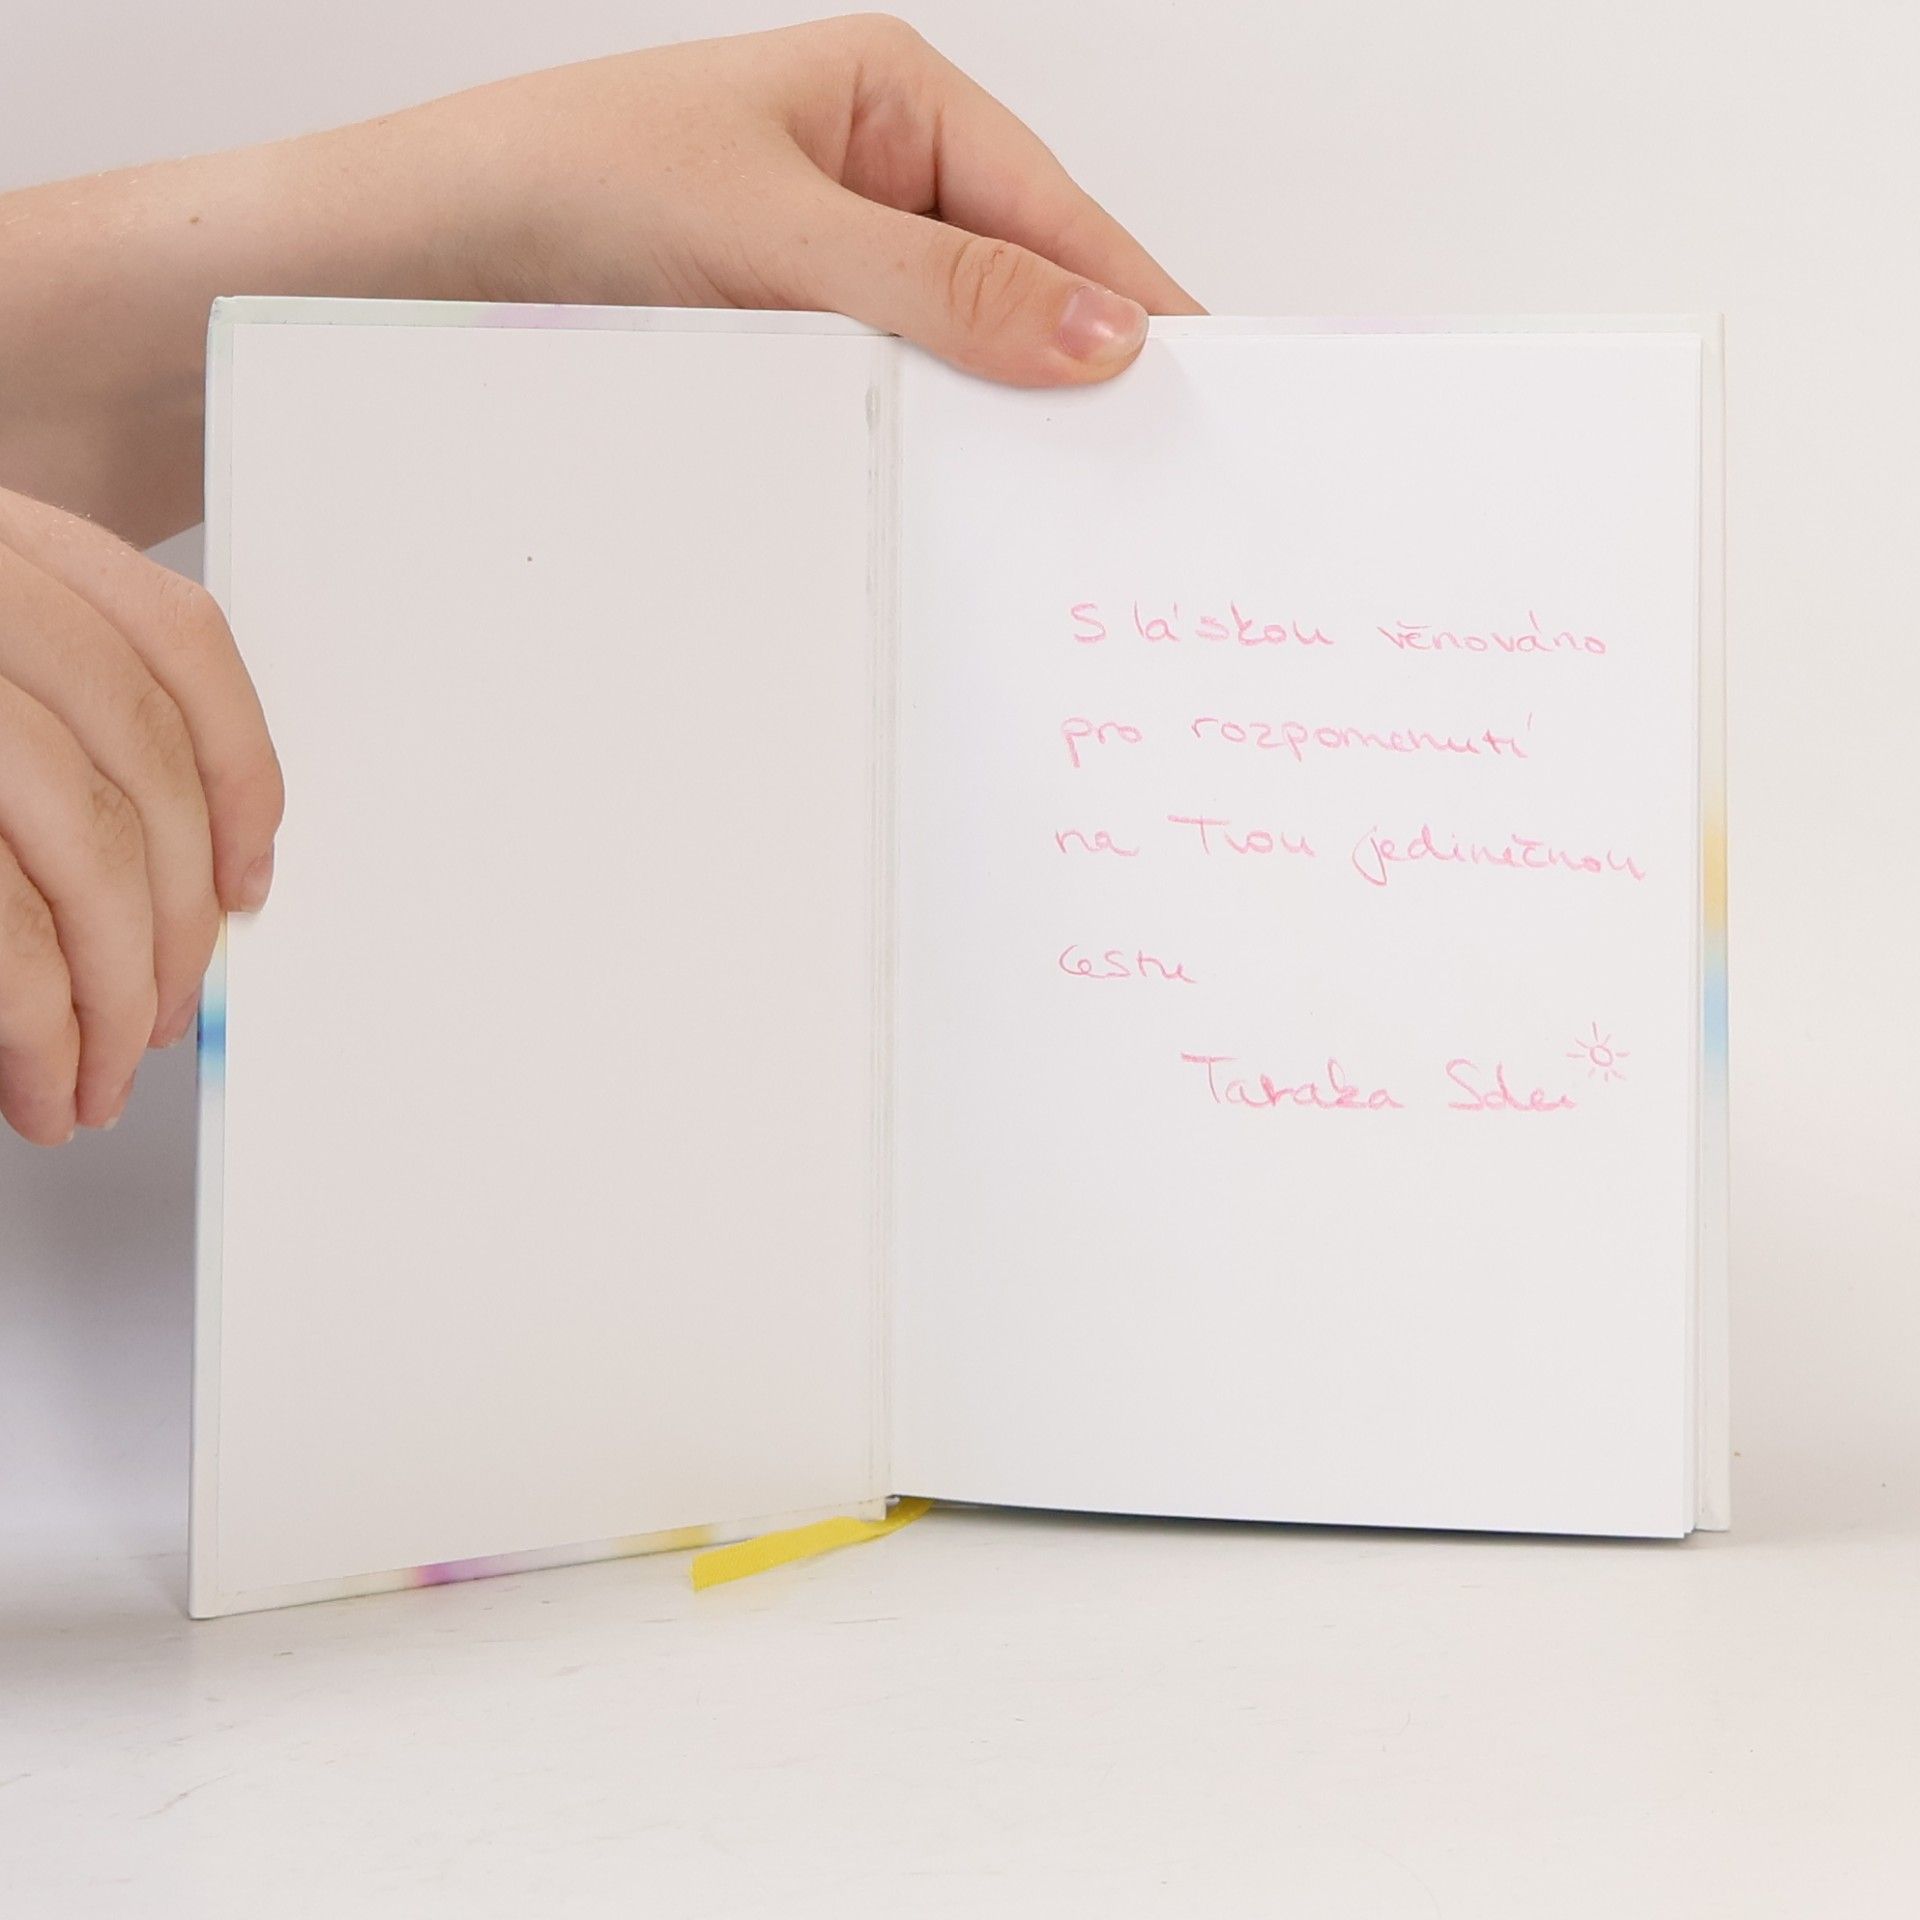 S láskou věnováno
pro rozpomenutí
na Tvou jedinečnou
cestu
Taraka